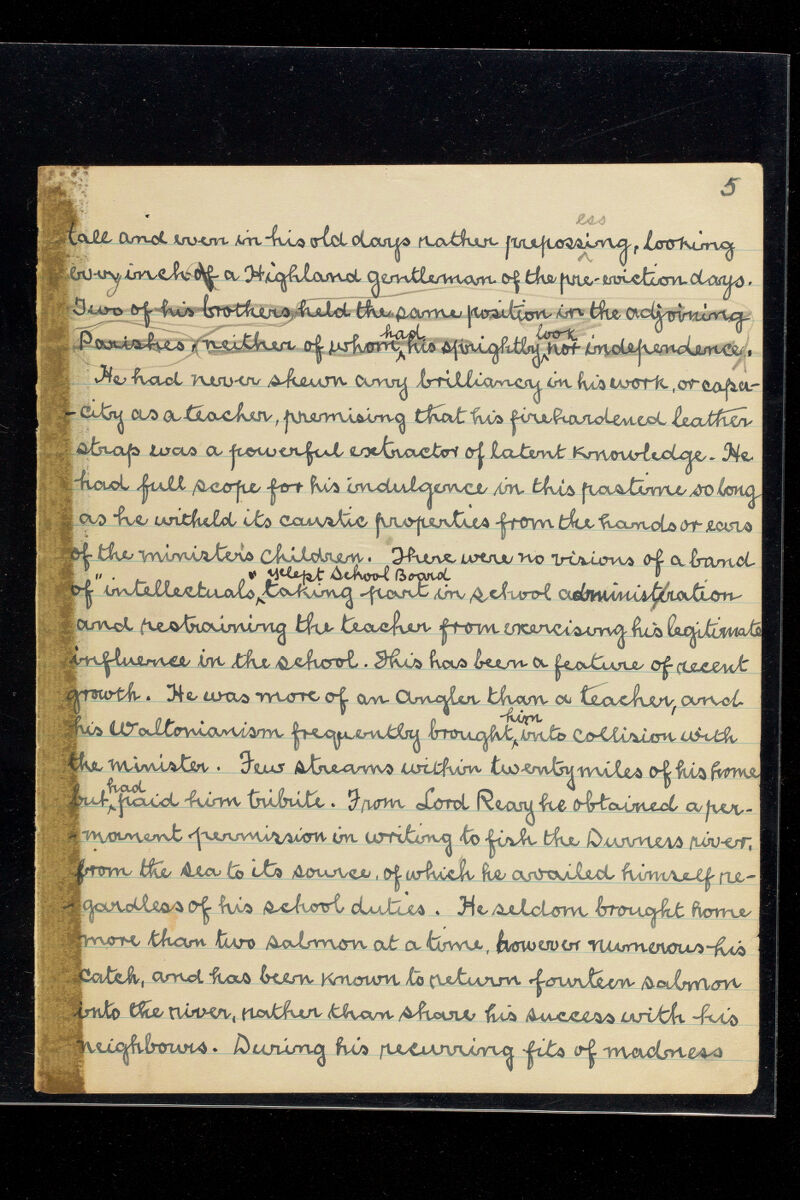 5
tall and even in his old days rather prepossessing, looking
every inch of a Highland gentleman of the pre-eviction days.
Two of his brothers held the same position in the adjoining
Parishes, neither of whom had his sprightly look nor independence.
He had never shewn any brilliancy in his work, or capa-
-city as a teacher, premising that his firehardened leather
strap was a powerful extractor of latent knowledge. He
had full scope for his indulgence in this pastime so long
as he witheld its caustic properties from the hands or ears
of the minister's children. There were no visions of a band
of "intellectuals" yclept School Board taking part in school administration
and restraining the teacher from exercising his legitimate
influence in the school. This has been a feature of recent
growth. He was more of an angler than a teacher, and
his Waltonianism frequently brought him into collision with
the minister. Few streams within twenty miles of his home
but had paid him tribute. From Lord Reay he obtained a per-
-manent permission in writing to fish the Durness river,
from the sea to its source, of which he availed himself re-
-gardless of his school duties. He seldom brought home
more than two salmon at a time, however numerous his
catch, and has been known to return fourteen salmon
into the river, rather than share his success with his
neighbours. During his recurring fits of madness